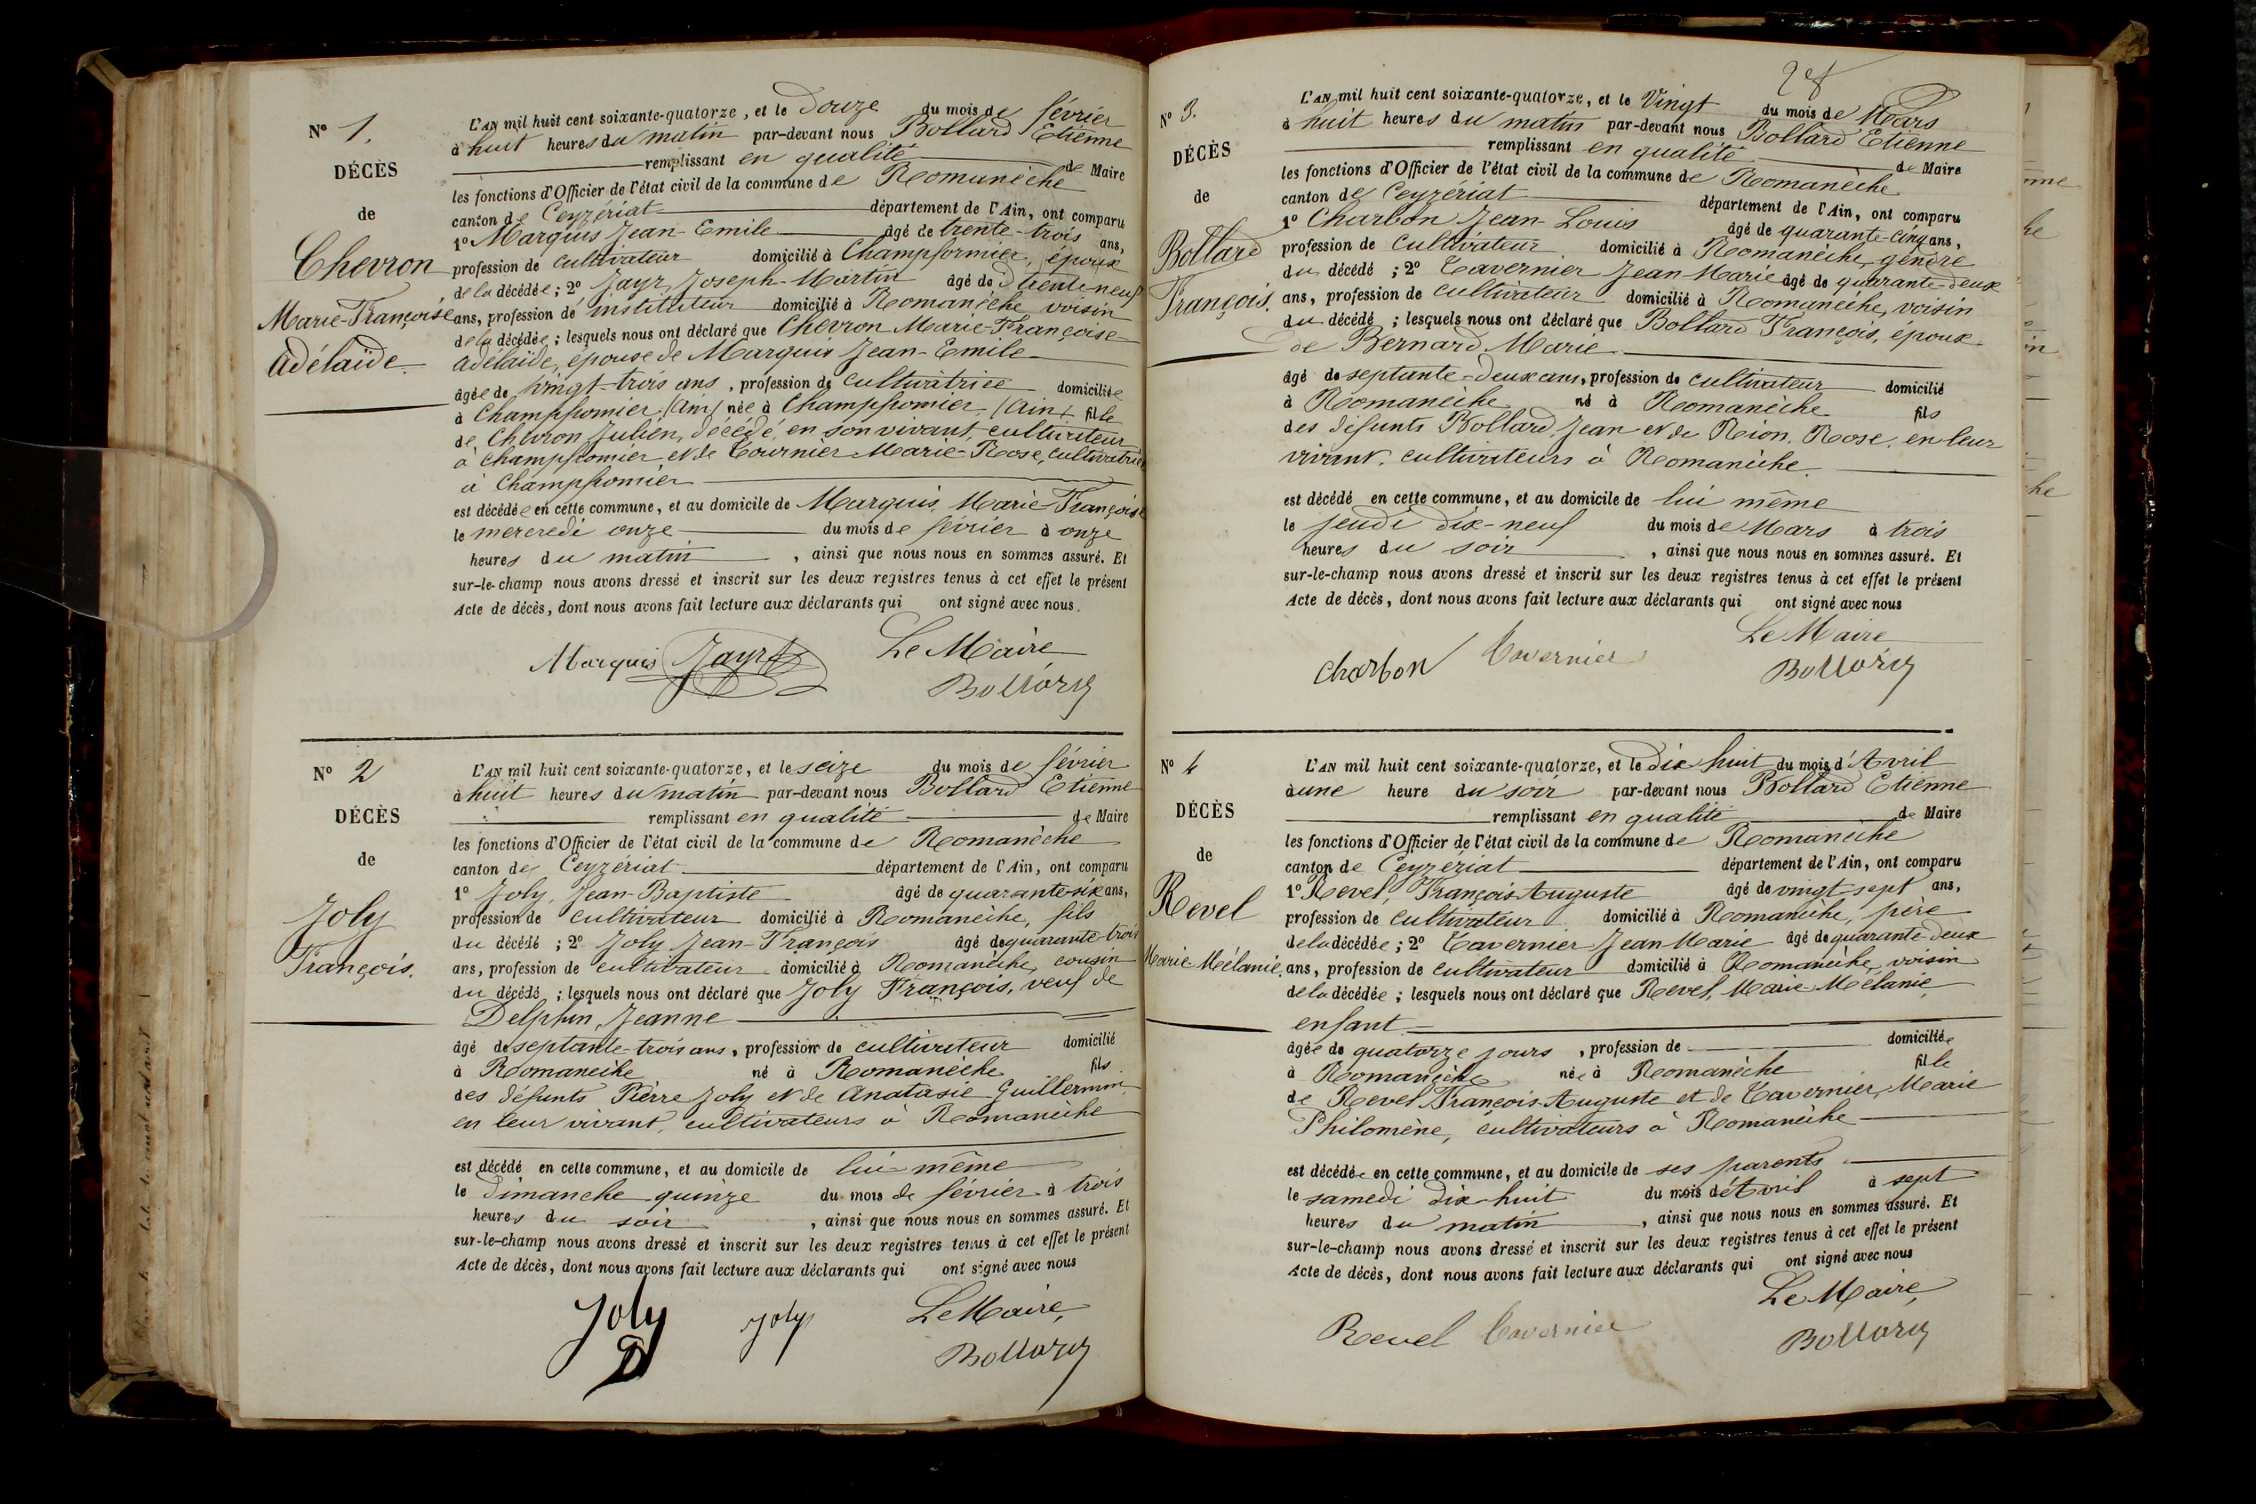 N° 1.
DÉCÈS
de
Chevron
Marie-Françoise
Adélaïde
L'AN mil huit cent soixante-quatorze, et le Douze du mois de février
à huit heures du matin par-devant nous Bollard Etienne
remplissant en qualité de Maire
les fonctions d'Officier de l'état civil de la commune de Romanèche
canton de Ceyzériat département de l'Ain, ont comparu
1° Marquis Jean-Emile âgé de trente-trois ans,
profession de cultivateur domicilié à Champfromier, époux
de la décédée; 2° Jayr, Joseph-Martin âgé de trente-neuf
ans, profession de instituteur domicilié à Romanèche voisin
de la décédée; lesquels nous ont déclaré que Chevron Marie-Françoise
Adélaïde, épouse de Marquis Jean-Emile
âgée de vingt-trois ans, profession de cultivatrice domiciliée
à Champfromier (Ain) née à Champfromier (Ain) fille
de Chevron Julien, décédé, en son vivant, cultivateur
à Champfromier et de Tournier Marie-Rose, cultivatrice
à Champfromier
est décédée en cette commune, et au domicile de Marquis Marie Françoise
le mercredi onze du mois de février à onze
heures du matin, ainsi que nous nous en sommes assuré. Et
sur-le-champ nous avons dressé et inscrit sur les deux registres tenus à cet effet le présent
Acte de décès, dont nous avons fait lecture aux déclarants qui ont signé avec nous.
Marquis Jayr Le Maire
Bollard
N° 2
DÉCÈS
de
Joly
François.
L'AN mil huit cent soixante-quatorze, et le seize du mois de février
à huit heures du matin par-devant nous Bollard Etienne
remplissant en qualité de Maire
les fonctions d'Officier de l'état civil de la commune de Romanèche
canton de Ceyzériat département de l'Ain, ont comparu
1° Joly, Jean-Baptiste âgé de quarante-six ans,
profession de cultivateur domicilié à Romanèche, fils
du décédé; 2° Joly Jean-François âgé de quarante-trois
ans, profession de cultivateur domicilié à Romanèche, cousin
du décédé; lesquels nous ont déclaré que Joly François, veuf de
Delphin, Jeanne
âgé de septante-trois ans, profession de cultivateur domicilié
à Romanèche né à Romanèche fils
des défunts Pierre Joly et de Anatasie Guillermin
en leur vivant, cultivateurs à Romanèche
est décédé en cette commune, et au domicile de lui-même
le Dimanche quinze du mois de février à trois
heures du soir, ainsi que nous nous en sommes assuré. Et
sur-le-champ nous avons dressé et inscrit sur les deux registres tenus à cet effet le présent
Acte de décès, dont nous avons fait lecture aux déclarants qui ont signé avec nous
Joly Joly Le Maire,
Bollard
N° 3.
DÉCÈS
de
Bollard
François.
L'AN mil huit cent soixante-quatorze, et le Vingt du mois de Mars
à huit heures du matin par-devant nous Bollard Etienne
remplissant en qualité de Maire
les fonctions d'Officier de l'état civil de la commune de Romanèche
canton de Ceyzériat département de l'Ain, ont comparu
1° Charbon Jean-Louis âgé de quarante-cinq ans,
profession de cultivateur domicilié à Romanèche, gendre
du décédé; 2° Tavernier Jean Marie âgé de quarante-deux
ans, profession de cultivateur domicilié à Romanèche, voisin
du décédé; lesquels nous ont déclaré que Bollard François, époux
de Bernard Marie
âgé de septante-deux ans, profession de cultivateur domicilié
à Romanèche né à Romanèche fils
des défunts Bollard, Jean et de Rion, Rose, en leur
vivant, cultivateurs à Romanèche.
est décédé en cette commune, et au domicile de lui même
le jeudi dix-neuf du mois de Mars à trois
heures du soir, ainsi que nous nous en sommes assuré. Et
sur-le-champ nous avons dressé et inscrit sur les deux registres tenus à cet effet le présent
Acte de décès, dont nous avons fait lecture aux déclarants qui ont signé avec nous
Charbon Tavernier Le Maire
Bollard
N° 4
DÉCÈS
de
Revel
Marie-Mélanie.
L'AN mil huit cent soixante-quatorze, et le dix huit du mois d'Avril
à une heure du soir par-devant nous Bollard Etienne
remplissant en qualité de Maire
les fonctions d'Officier de l'état civil de la commune de Romanèche
canton de Ceyzériat département de l'Ain, ont comparu
1° Revel, François-Auguste âgé de vingt-sept ans,
profession de cultivateur domicilié à Romanèche, père
de la décédée; 2° Tavernier Jean Marie âgé de quarante-deux
ans, profession de cultivateur domicilié à Romanèche, voisin
de la décédée; lesquels nous ont déclaré que Revel, Marie-Mélanie,
enfant
âgée de quatorze jours, profession de domiciliée
à Romanèche née à Romanèche fille
de Revel François-Auguste et de Tavernier, Marie
Philomène, cultivateurs à Romanèche
est décédée en cette commune, et au domicile de ses parents
le samedi dix-huit du mois d'Avril à sept
heures du matin, ainsi que nous nous en sommes assuré. Et
sur-le-champ nous avons dressé et inscrit sur les deux registres tenus à cet effet le présent
Acte de décès, dont nous avons fait lecture aux déclarants qui ont signé avec nous
Revel Tavernier Le Maire,
Bollard